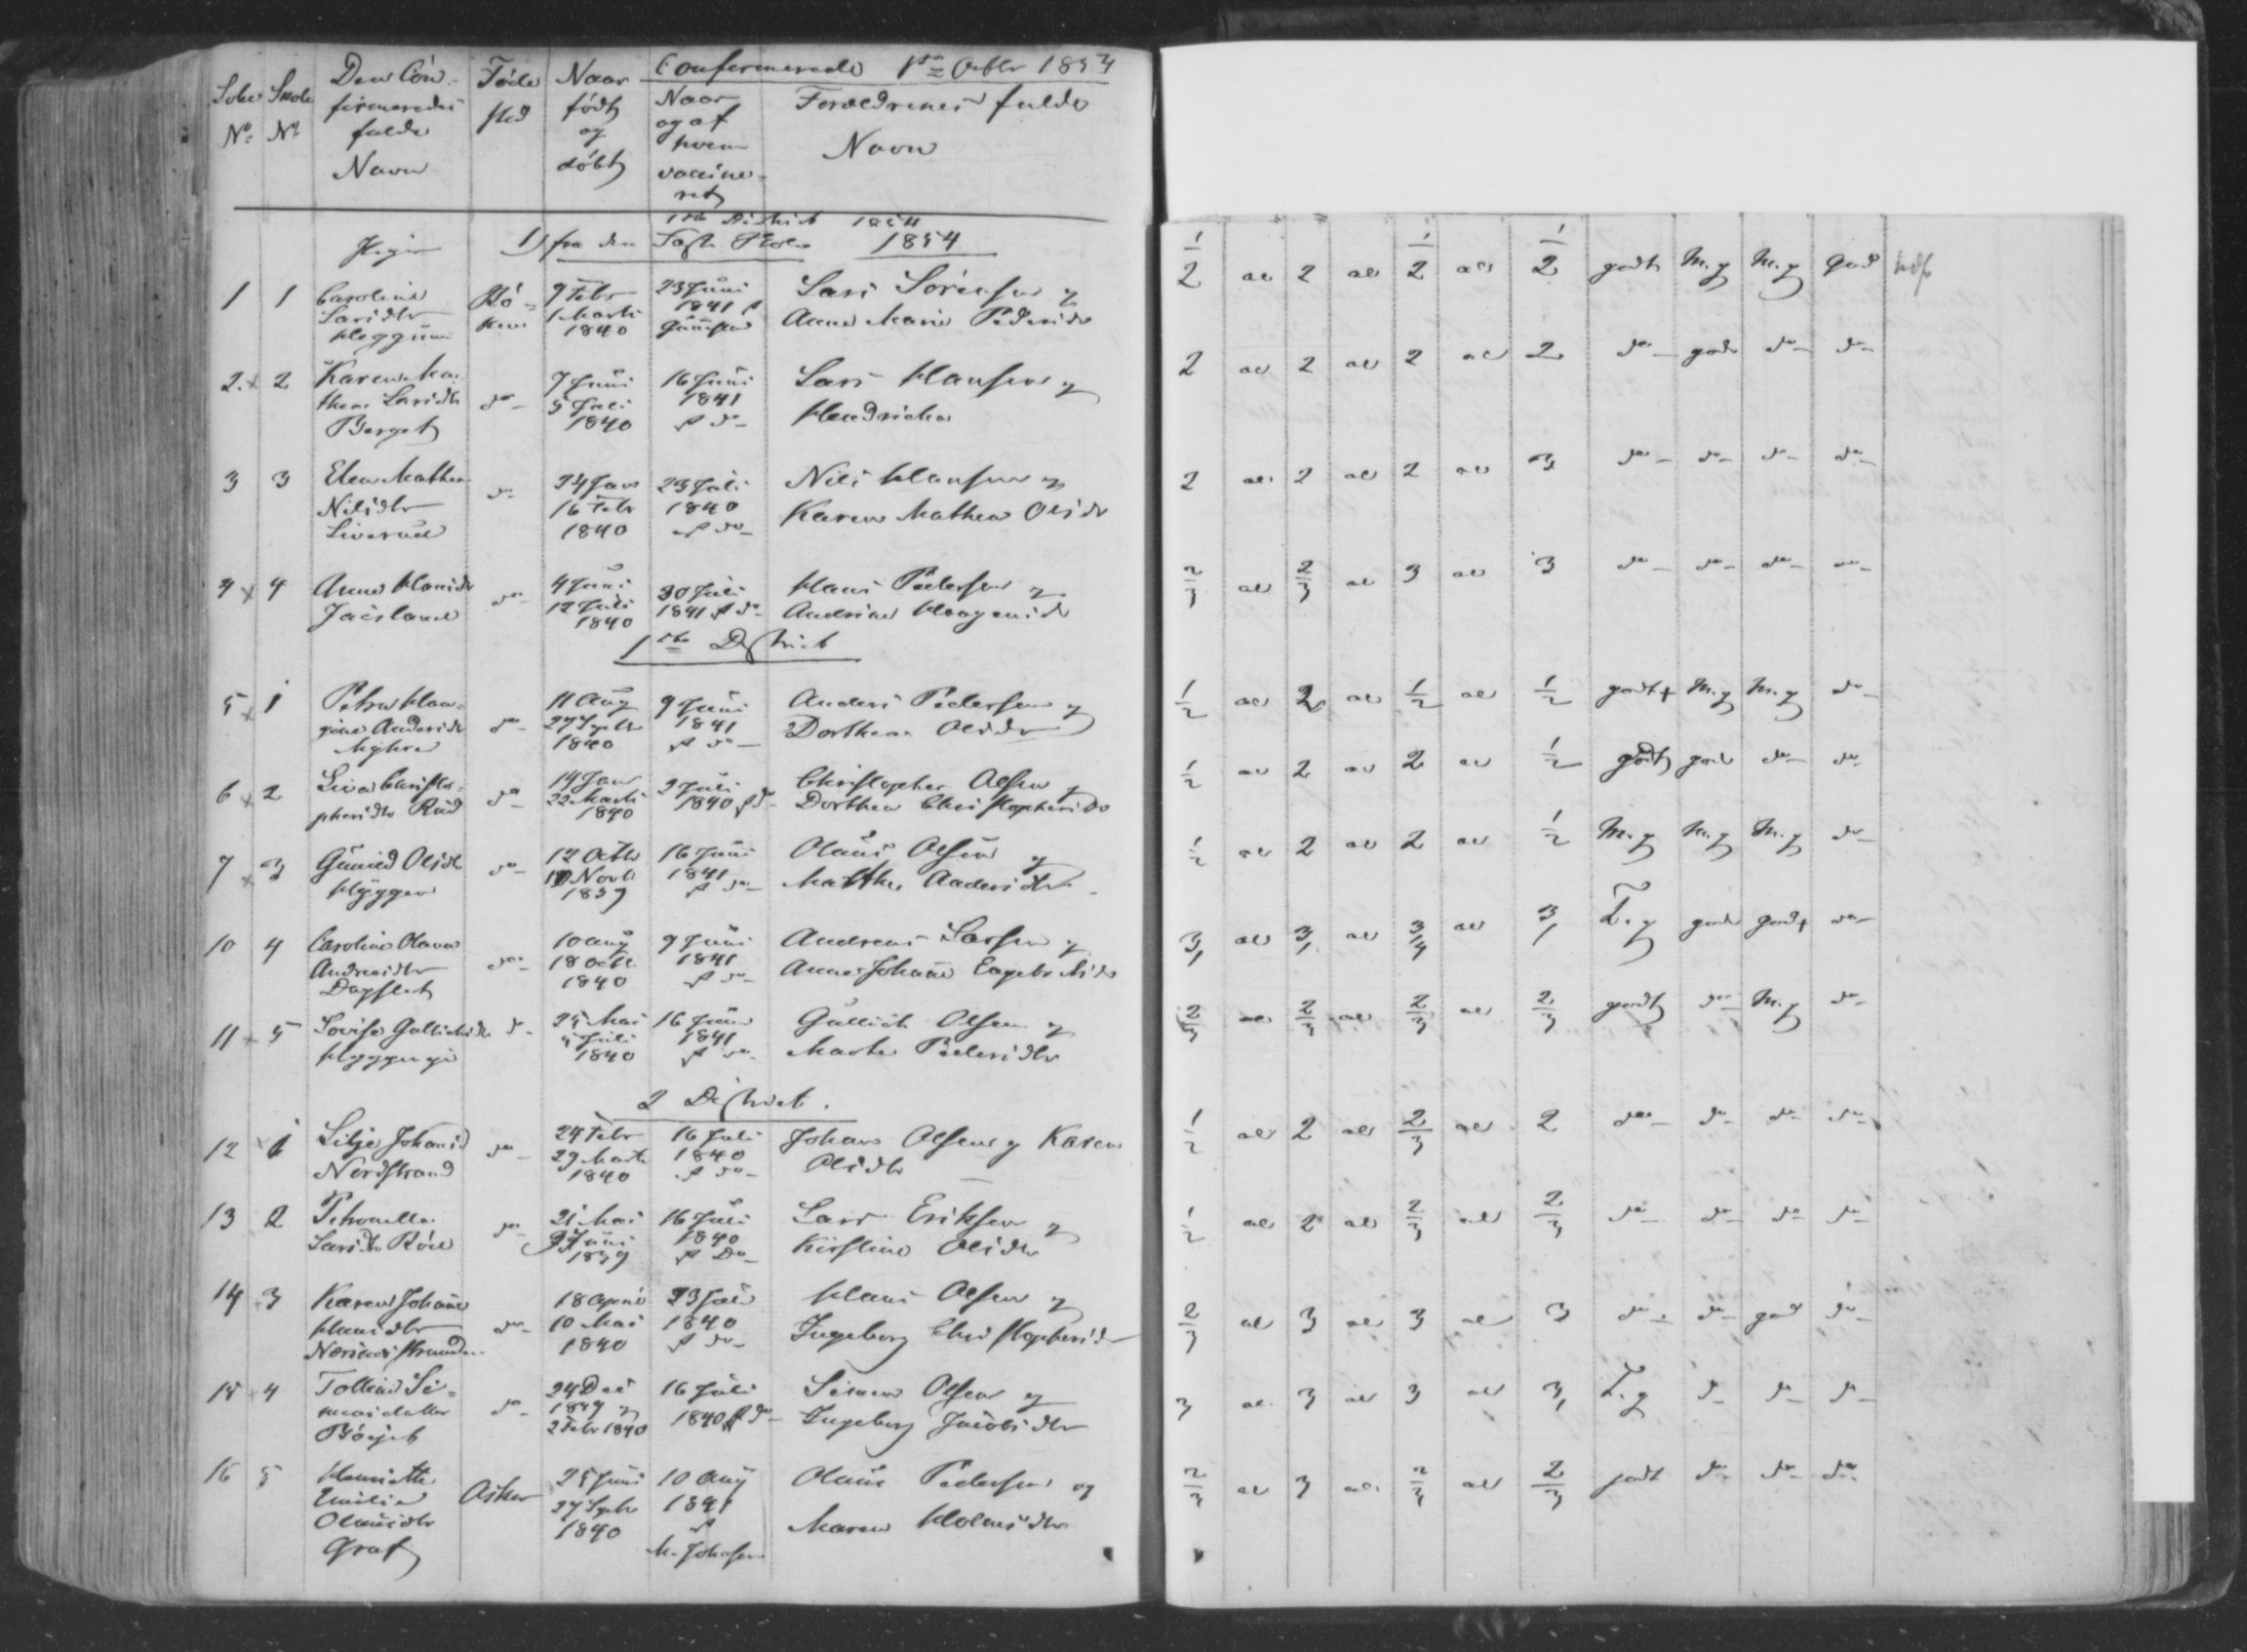 Confirmerede 1ste Octbr 1854
Lobe No Skole No Den Confirmeredes fulde Navn Føde sted Naar født og døbt Naar og af hvem vaccineret Forældrenes fulde Navn
1ste District 1854
Piger 1) fra den faste Skole 1854
1 1 Caroline Larsdtr Røken 9 Febr 1 Marts 1840 23 Juni 1841 Lars Sørensen og Anne Marie Pedersdtr
2 2 Karen Mathea Larsdtr Berget do 7 Juni 5 Juli 1840 16 Juni 1841 af do Lars Hansen og Hendricka
3 3 Elen Mathea Nilsdtr Liverud do 24 Janr 16 Febr 1840 23 Juli 1840 af do Nils Hansen og Karen Mathea Olsdr
4 4 Anne Hansdr do 4 Juni 12 Juli 1840 30 Juli 1841 af do Hans Pedersen og Andrine Haagensdr
1ste District
5 1 Petra Hangine Andersdr Myhre do 11 Aug 27 Septbr 1840 9 Juni 1841 af do Anders Pedersen og Dorthea Olsdr
6 2 Live Christophersdtr Rud do 14 Janr 22 Marts 1840 2 Juli 1840 af do Christopher Olsen og Dorthea Christophersdr
7 3 Gunild Olsdr Hyggen do 12 Octbr 10 Novb 1839 16 Juni 1841 af do Olaus Olsen og Marthe Andersdtr
10 4 Caroline Olava Andreasdtr Dagslet do 10 Aug 18 Octb 1840 9 Juni 1841 af do Andreas Larsen og Anne Johanne Engebretsdr
11 5 Lovise Gulliksdr do 24 Mai 5 Juli 1840 16 Juni 1841 af do Gullich Olsen og Marte Pedersdtr
2 District.
12 1 Silje Johansd Nordstrand do 24 Febr 29 Marts 1840 16 Juli 1840 af do Johans Olsen og Karen Olsdtr
13 2 Petronella Larsdtr do 21 Mai Juni 1839 16 Juli 1840 af Do Lars Eriksen og Kirstine Olsdtr
14 3 Karen Johanne Hansdtr do 18 April 10 Mai 1840 23 Juli 1840 af do Hans Olsen og Ingeborg Christophersdr
15 4 Tolline Simensdatter do 24 Dec 1839 og 2 Febr 1840 16 Juli 1840 af do Simen Olsen og Ingeborg Jacobsdtr
16 5 Henriette Emilie Olausdtr Graf Asker 25 Juni 27 Septbr 1840 10 Aug 1841 af M. Johnsen Olaus Pedersen og Maren Holmsdtr
1/2 al 2 al 1/2 al 1/2 godt M.g M.g God
2 al 2 al 2 al 2 do god do do
2 al 2 al 2 al 3 do do do do
2/3 al 2/3 al 3 al 3 do do do do
1/2 al 2 al 1/2 al 1/2 godt+ M.g M.g do
1/2 al 2 al 2 al 1/2 godt god do do
1/2 al 2 al 2 al 1/2 M.g M.g M.g do
3 al 3 al 3/4 al 3 T.g god god+ do
2/3 al 2/3 al 2/3 al 2/3 godt do M.g do
1/2 al 2 al 2/3 al 2 do do do do
1/2 al 2 al 2/3 al 2/3 do do do do
2/3 al 3 al 3 al 3 do do god do
3 al 3 al 3 al 3 T.g do do do
2/3 al 3 al 2/3 al 2/3 godt do do do